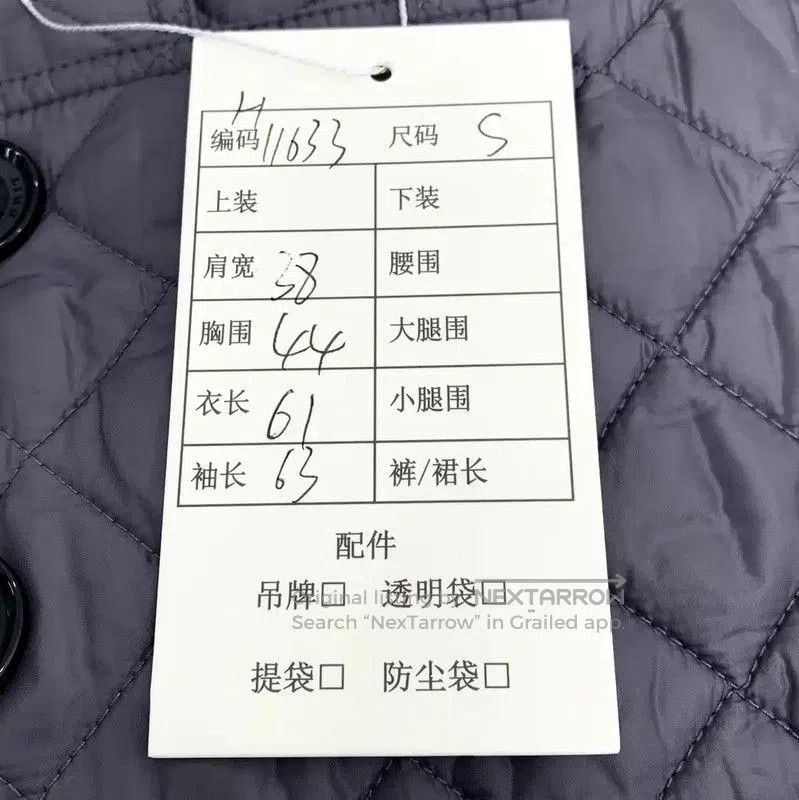 H
编码 11633 尺码 S
上装 下装
肩宽 38 腰围
胸围 44 大腿围
衣长 61 小腿围
袖长 63 裤/裙长
配件
吊牌□ 透明袋□
Original listing on NEXTARROW
Search “NexTarrow” in Grailed app.
提袋□ 防尘袋□